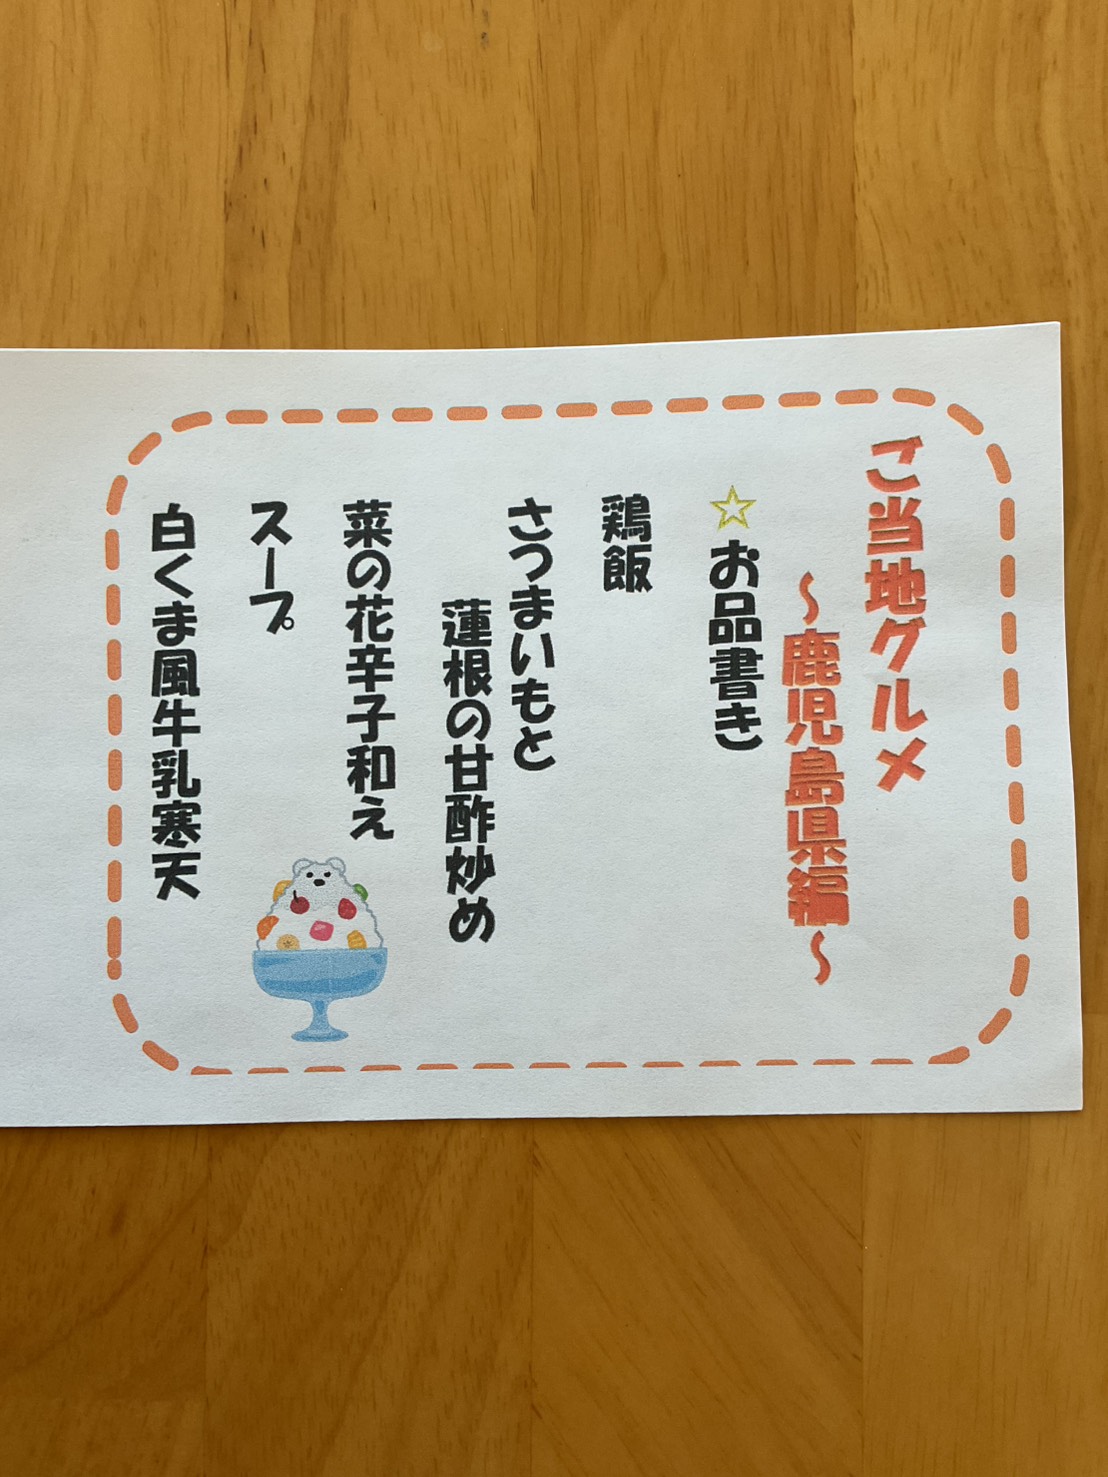 ご当地グルメ
～鹿児島県編～
☆お品書き
鶏飯
さつまいもと
蓮根の甘酢炒め
菜の花辛子和え
スープ
白くま風牛乳寒天